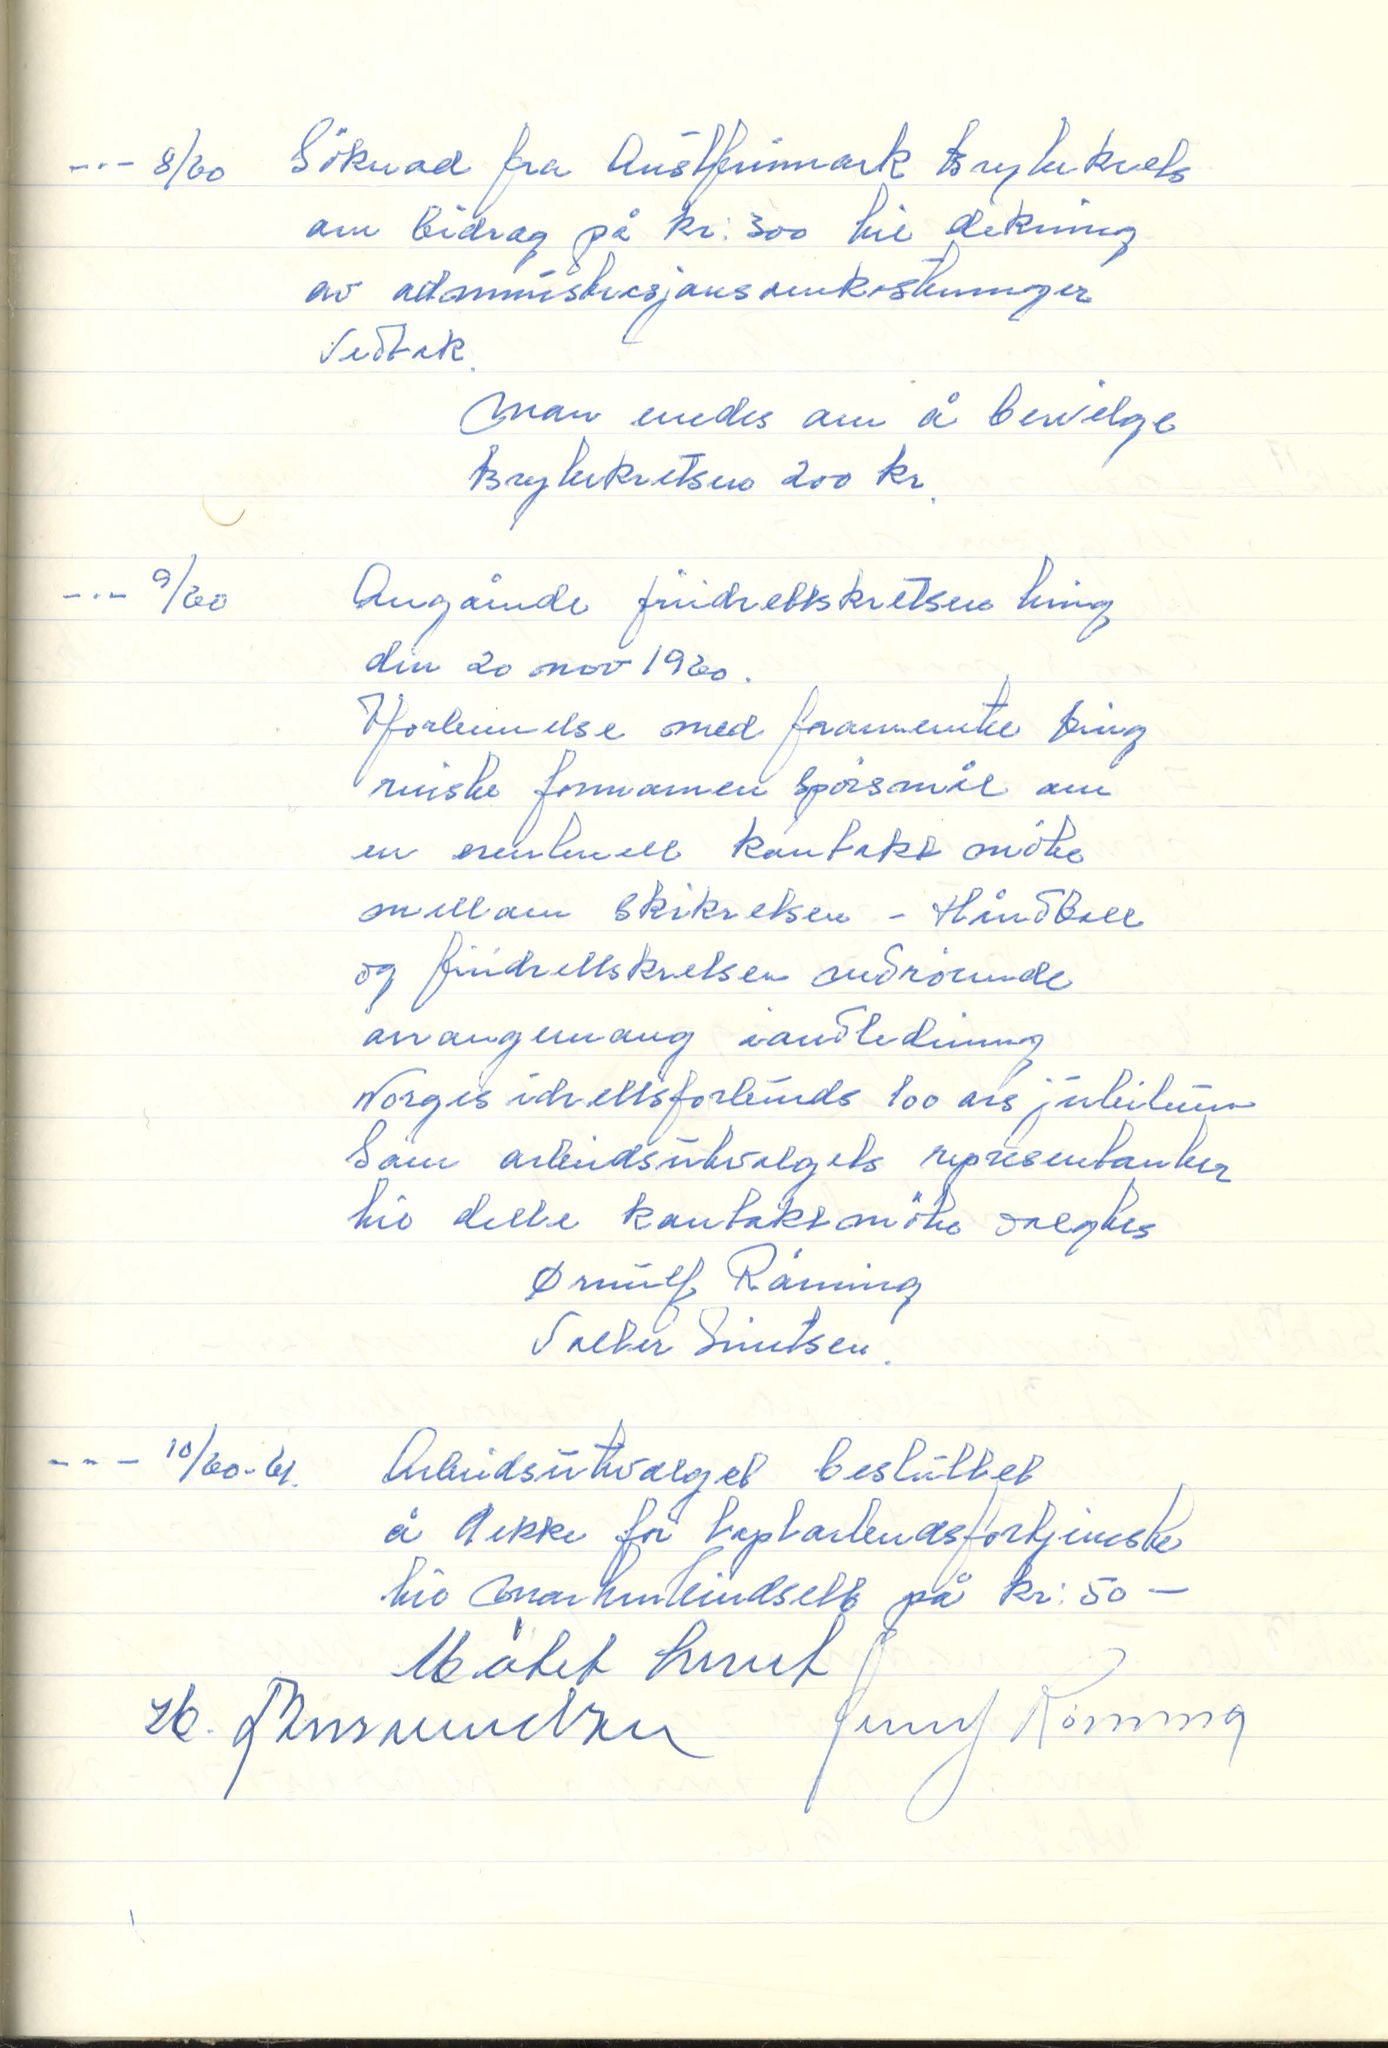 --- 8/60 Söknad fra Austfinnmark Brytekrets
om bidrag på kr: 300 til dekning
av administrasjonsomkostninger
Vedtak.
Man enedes om å bevilge
Brytekretsen 200 kr.
--- 9/60 Angående friidrettskretsens ting
den 20 nov 1960.
I forbinnelse med foran ting
reiste formannen spörsmål om
en eventuell kontakt möte
mellom Skikretsen - Håndball
og friidrettskretsen vedrörende
arrangemang i andledning
Norges idrettsforbunds 100 års jubileum
Som arbeidsutvalgets representanter
til dette kontaktmöte valgtes
Ørnulf Råning
Valter Knutsen.
--- 10/60-61. Arbeidsutvalget besluttet
å dekke for taptarbeidsfortjeneste
til på kr: 50 –
Mötet hevet
H. Amundsen Råning